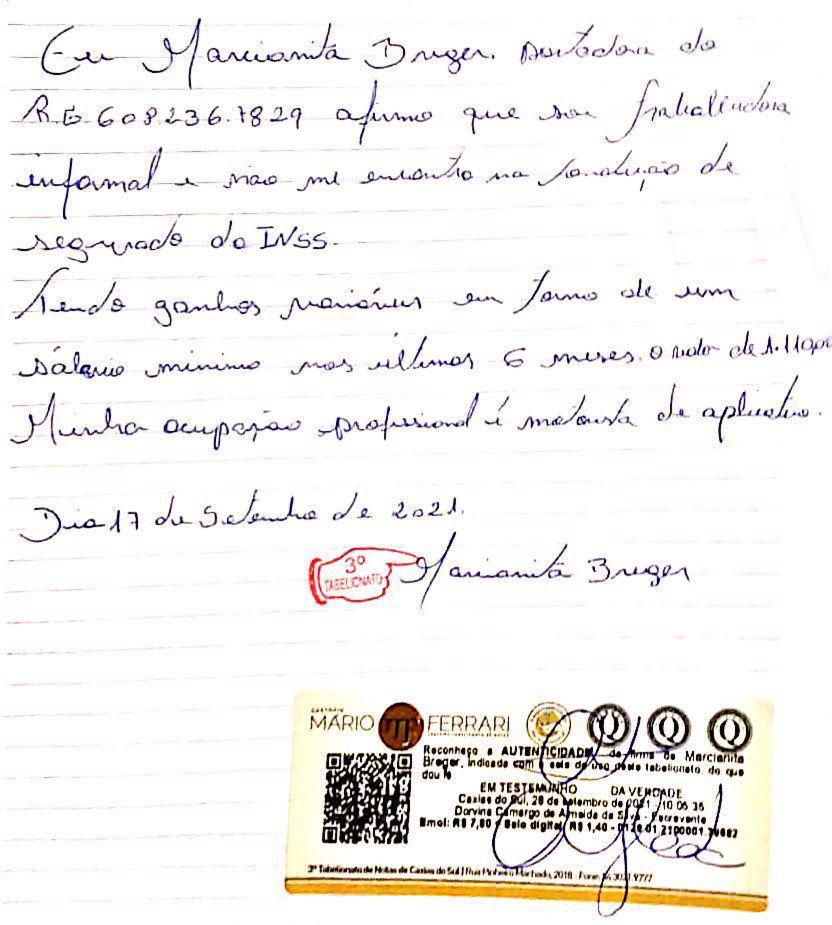 Eu Marcianita Breger. portadora do
R.G 608236.7829 afirmo que sou trabalhadora
informal e não me encontro na condição de
segurado do INSS.
Tendo ganhos variáveis em torno de um
sálario minimo nos ultimos 6 meses. o valor de 1.110,00
Minha ocupação profissional é motorista de aplicativo.
Dia 17 de Setembro de 2021.
3º
TABELIONATO
Marcianita Breger
MÁRIO FERRARI
Reconheço a AUTENTICIDADE da firma de Marcianita
Breger, indicada com a seta de uso deste tabelionato do que
dou fé
EM TESTEMUNHO DA VERDADE
Caxias do Sul, 28 de setembro de 2021 - 10:05:35
Dorvina Camargo de Almeida da Silva - Escrevente
Emol: R$ 7,80 / Selo digital: R$ 1,40 -
3º Tabelionato de Notas de Caxias do Sul | Rua Pinheiro Machado, 2018 - Fone: